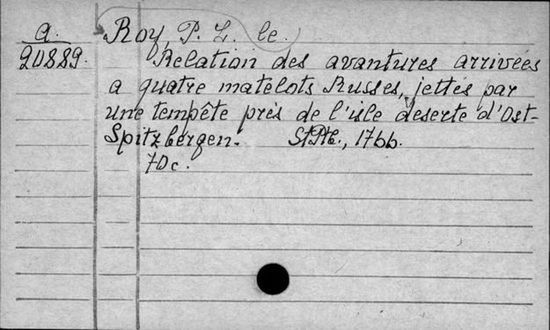 a. Roy, P. L. le.
20889. Relation des avantures arrivées
a quatre matelots Russes, jettés par
une tempête près de l'isle deserte d'Ost-
Spitzbergen. StPtb., 1766.
70c.